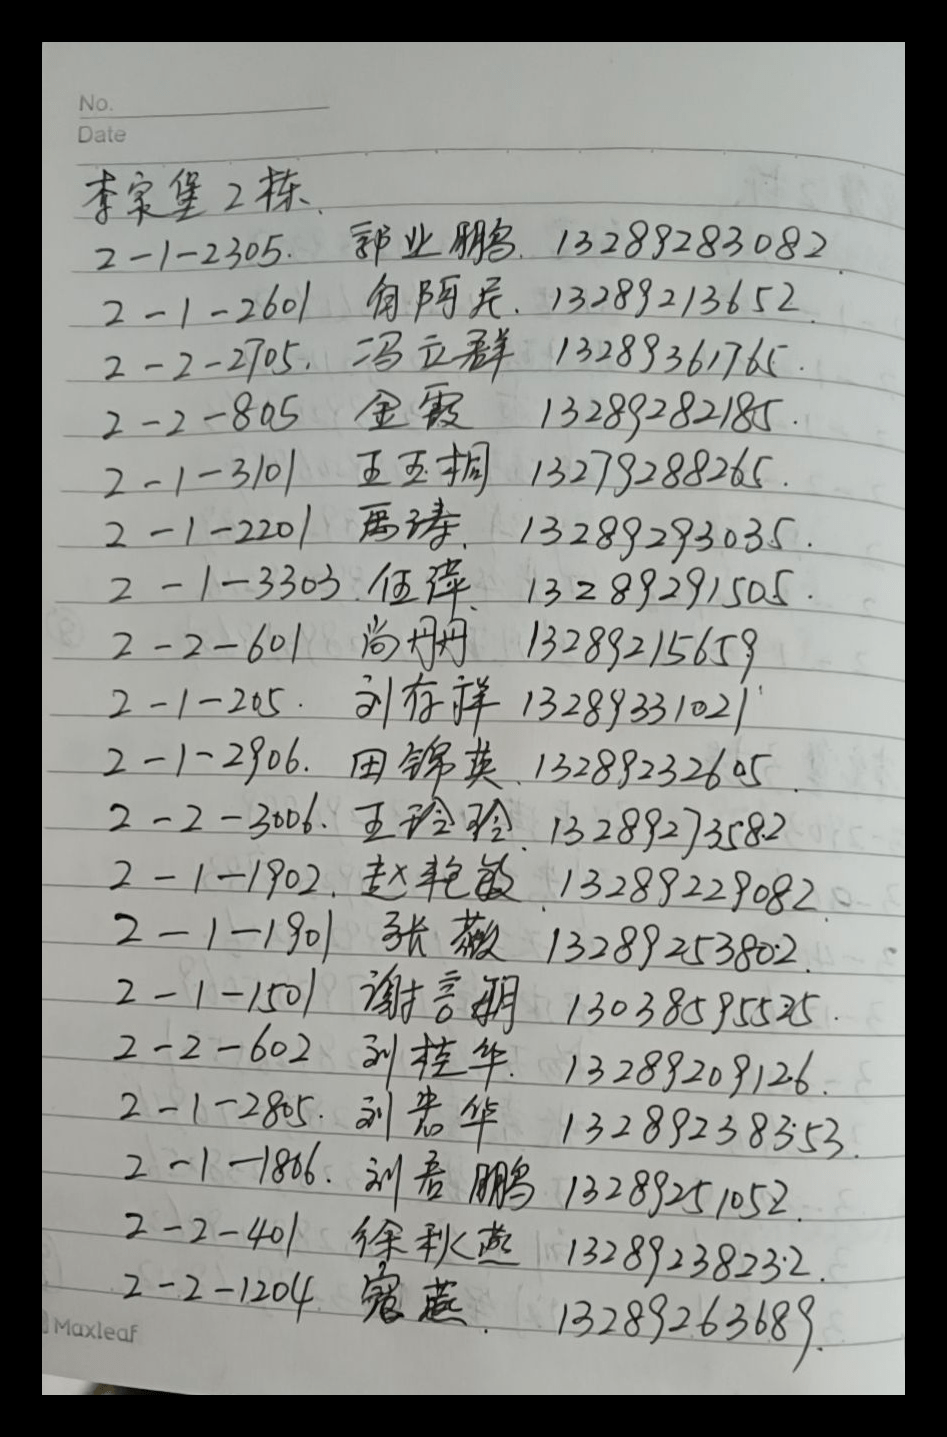 No.
Date
李家堡2栋.
2-1-2305. 郭业鹏. 13289283082.
2-1-2601 何阿尼. 13289213652.
2-2-2705. 冯立群 13289361765.
2-2-805 金霞 13289282185.
2-1-3101 王玉桐 13279288265.
2-1-2201 周涛. 13289293035.
2-1-3303. 伍萍. 13289291505.
2-2-601 尚丹丹 13289215659
2-1-205. 刘存祥 13289331021
2-1-2906. 田锦英. 13289232605.
2-2-3006. 王玲玲. 13289273582
2-1-1902. 赵艳敏. 13289229082.
2-1-1901 张薇 13289253802.
2-1-1501 谢言明 13038595525.
2-2-602 刘桂华. 13289209126.
2-1-2805. 刘 华 13289238353.
2-1-1806. 刘君鹏 13289251052.
2-2-401 徐秋燕 13289238232.
2-2-1204 寇燕. 13289263689.
Maxleaf